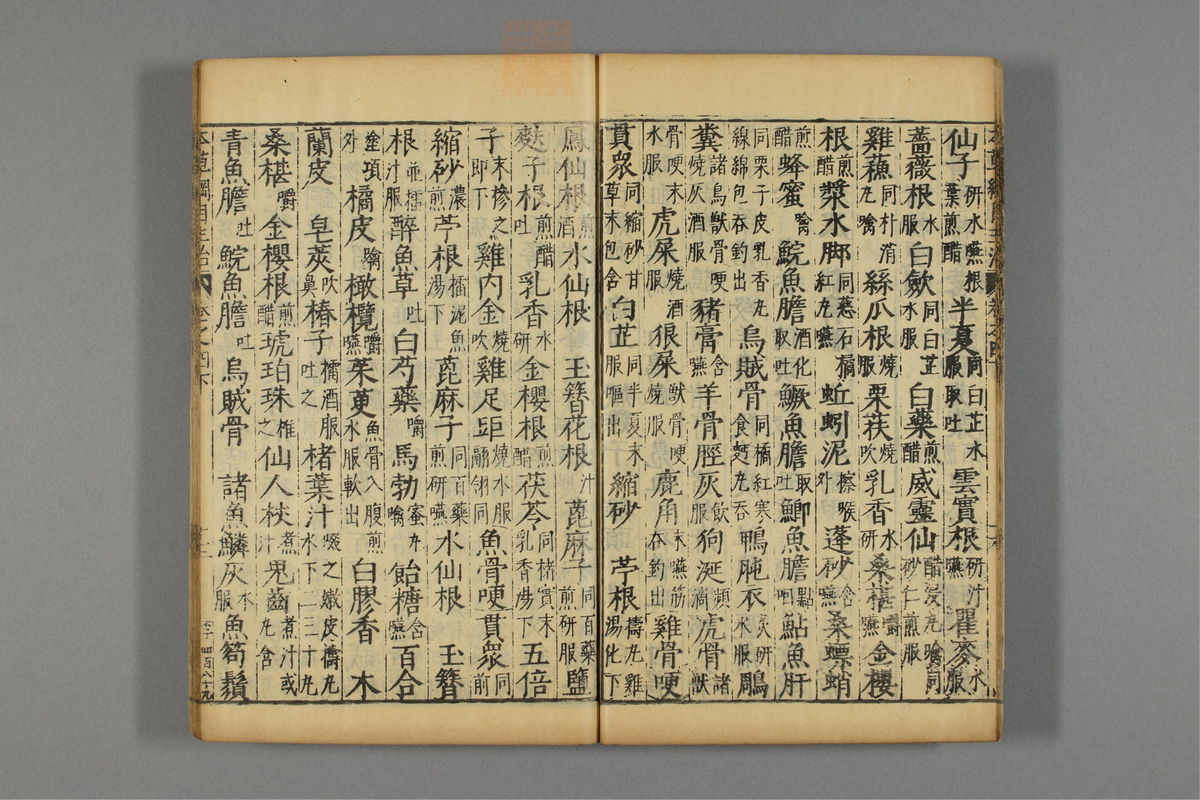 仙子研水嚥根葉煎醋半夏同白芷水服取吐雲實根研汁嚥瞿麥水服
薔薇根水服白斂同白芷水服白藥煎醋威靈仙醋浸丸噙同砂仁煎服
雞蘓同朴消丸噙絲瓜根燒服栗荴燒吹乳香水研桑椹嚼嚥金櫻
根煎醋漿水脚同慈石橘紅丸嚥蚯蚓泥擦喉外蓬砂含嚥桑螵蛸
煎醋蜂蜜噙鯇魚膽酒化取吐鱖魚膽取吐鯽魚膽點鮎魚肝
同栗子皮乳香丸線綿包吞釣出烏賊骨同橘紅寒食麪丸吞鴨肫衣炙研水服鵰
糞諸鳥獸骨哽燒灰酒服豬膏含嚥羊骨脛灰飲服狗涎頻滴虎骨諸獸
骨哽末水服虎屎燒酒服狼屎獸骨哽燒服鹿角末嚥筋吞釣出雞骨哽
貫衆同縮砂甘草末包含白芷同半夏末服嘔出縮砂 苧根擣丸雞湯化下
鳳仙根煎酒水仙根 玉簪花根汁蓖麻子同百藥煎研服鹽
麩子根煎醋吐乳香水研金櫻根煎醋茯苓同楮實末乳香湯下五倍
子末摻之即下雞內金燒吹雞足距燒水服翮翎同魚骨哽貫衆同前
縮砂濃煎苧根擂泥魚湯下蓖麻子同百藥煎研嚥水仙根 玉簪
根並擂汁服醉魚草吐白芍藥嚼馬勃蜜丸噙飴糖含嚥百合
塗項外橘皮噙橄欖嚼嚥茱萸魚骨入腹煎水服軟出白膠香 木
蘭皮 皂莢吹鼻椿子擂酒服吐之楮葉汁啜之嫩皮擣丸水下二三十丸
桑椹嚼金櫻根煎醋琥珀珠推之仙人杖煮汁鬼齒煮汁或丸含
青魚膽吐鯇魚膽吐烏賊骨 諸魚鱗灰水服魚笱鬚
本草綱目主治 卷之四下
李 四百八十九